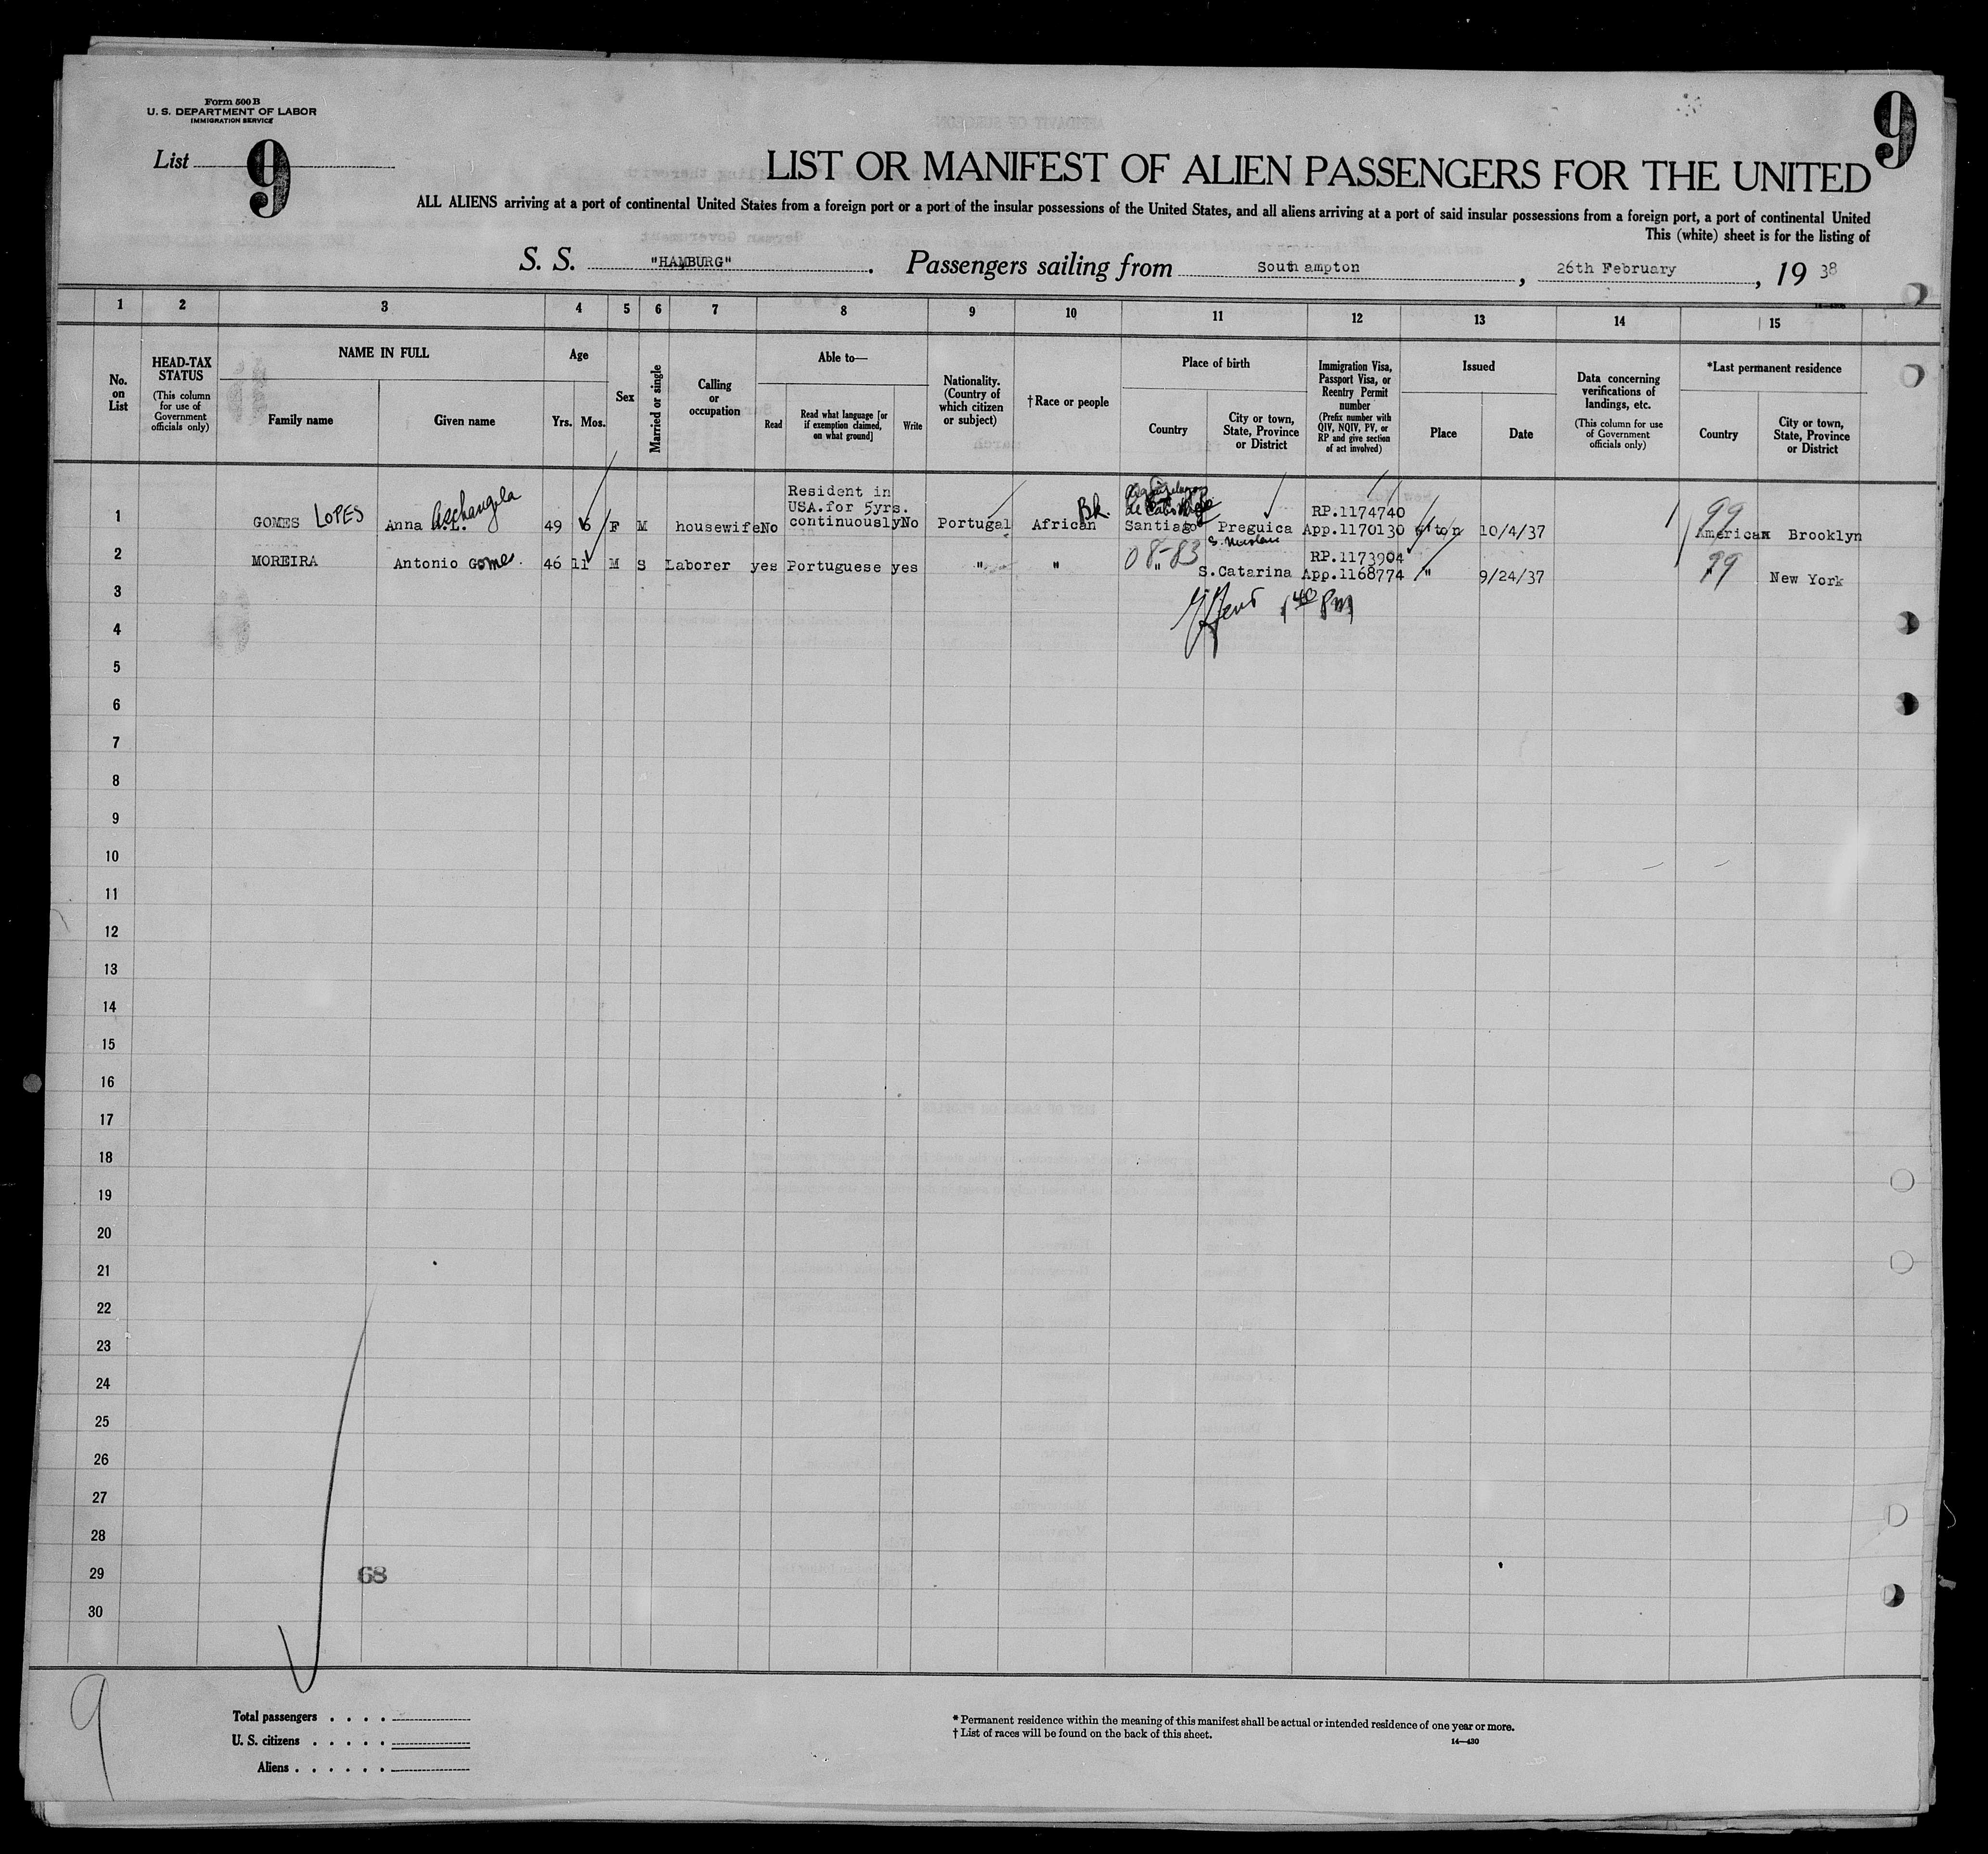 Form 500 B
U. S. DEPARTMENT OF LABOR
IMMIGRATION SERVICE
List 9
9
LIST OR MANIFEST OF ALIEN PASSENGERS FOR THE UNITED
ALL ALIENS arriving at a port of continental United States from a foreign port or a port of the insular possessions of the United States, and all aliens arriving at a port of said insular possessions from a foreign port, a port of continental United
This (white) sheet is for the listing of
S. S. "HAMBURG". Passengers sailing from Southampton, 26th February, 19 38
1 2 3 4 5 6 7 8 9 10 11 12 13 14 15
No. on List
HEAD-TAX STATUS
(This column for use of Government officials only)
NAME IN FULL
Family name
Given name
Age
Yrs. Mos.
Sex
Married or single
Calling or occupation
Able to—
Read
Read what language [or if exemption claimed, on what ground]
Write
Nationality. (Country of which citizen or subject)
† Race or people
Place of birth
Country
City or town, State, Province or District
Immigration Visa, Passport Visa, or Reentry Permit number
(Prefix number with QIV, NQIV, PV, or RP and give section of act involved)
Issued
Place
Date
Data concerning verifications of landings, etc.
(This column for use of Government officials only)
*Last permanent residence
Country
City or town, State, Province or District
1 GOMES LOPES Anna 49 6 F M housewife No Resident in USA.for 5yrs. continuously No Portugal African Bk. Santiago Preguica RP.1174740 App.1170130 10/4/37 99 American Brooklyn
2 MOREIRA Antonio Gomes 46 11 M S Laborer yes Portuguese yes " " 08-83 " S.Catarina RP.1173904 App.1168774 " 9/24/37 99 " New York
3
4
5
6
7
8
9
10
11
12
13
14
15
16
17
18
19
20
21
22
23
24
25
26
27
28
29 68
30
9
Total passengers
U. S. citizens
Aliens
* Permanent residence within the meaning of this manifest shall be actual or intended residence of one year or more.
† List of races will be found on the back of this sheet.
14—430